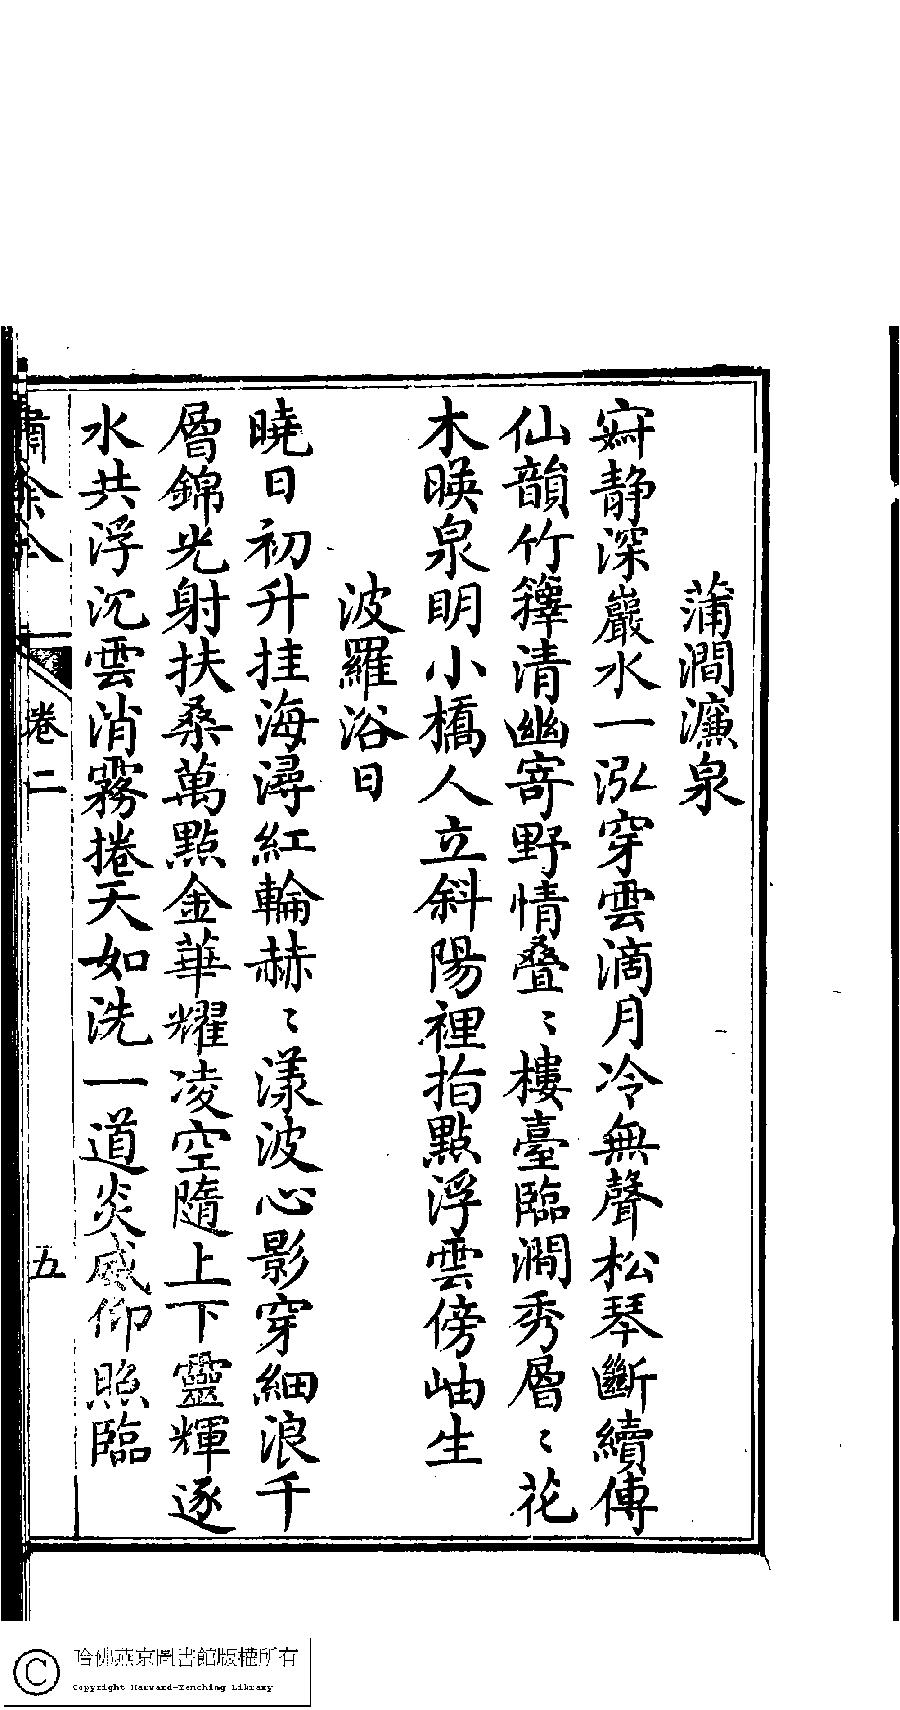 蒲澗濂泉
寂静深巖水一泓穿雲滴月冷無聲松琴斷續傳
仙韻竹籜清幽寄野情叠〻樓臺臨澗秀層〻花
木暎泉明小橋人立斜陽裡指點浮雲傍岫生
波羅浴日
曉日初升挂海潯紅輪赫〻漾波心影穿細浪千
層錦光射扶桑萬點金華耀凌空隨上下靈輝逐
水共浮沉雲消霧捲天如洗一道炎威仰照臨
卷二
五
哈佛燕京圖書館版權所有
Copyright Harvard-Yenching Library